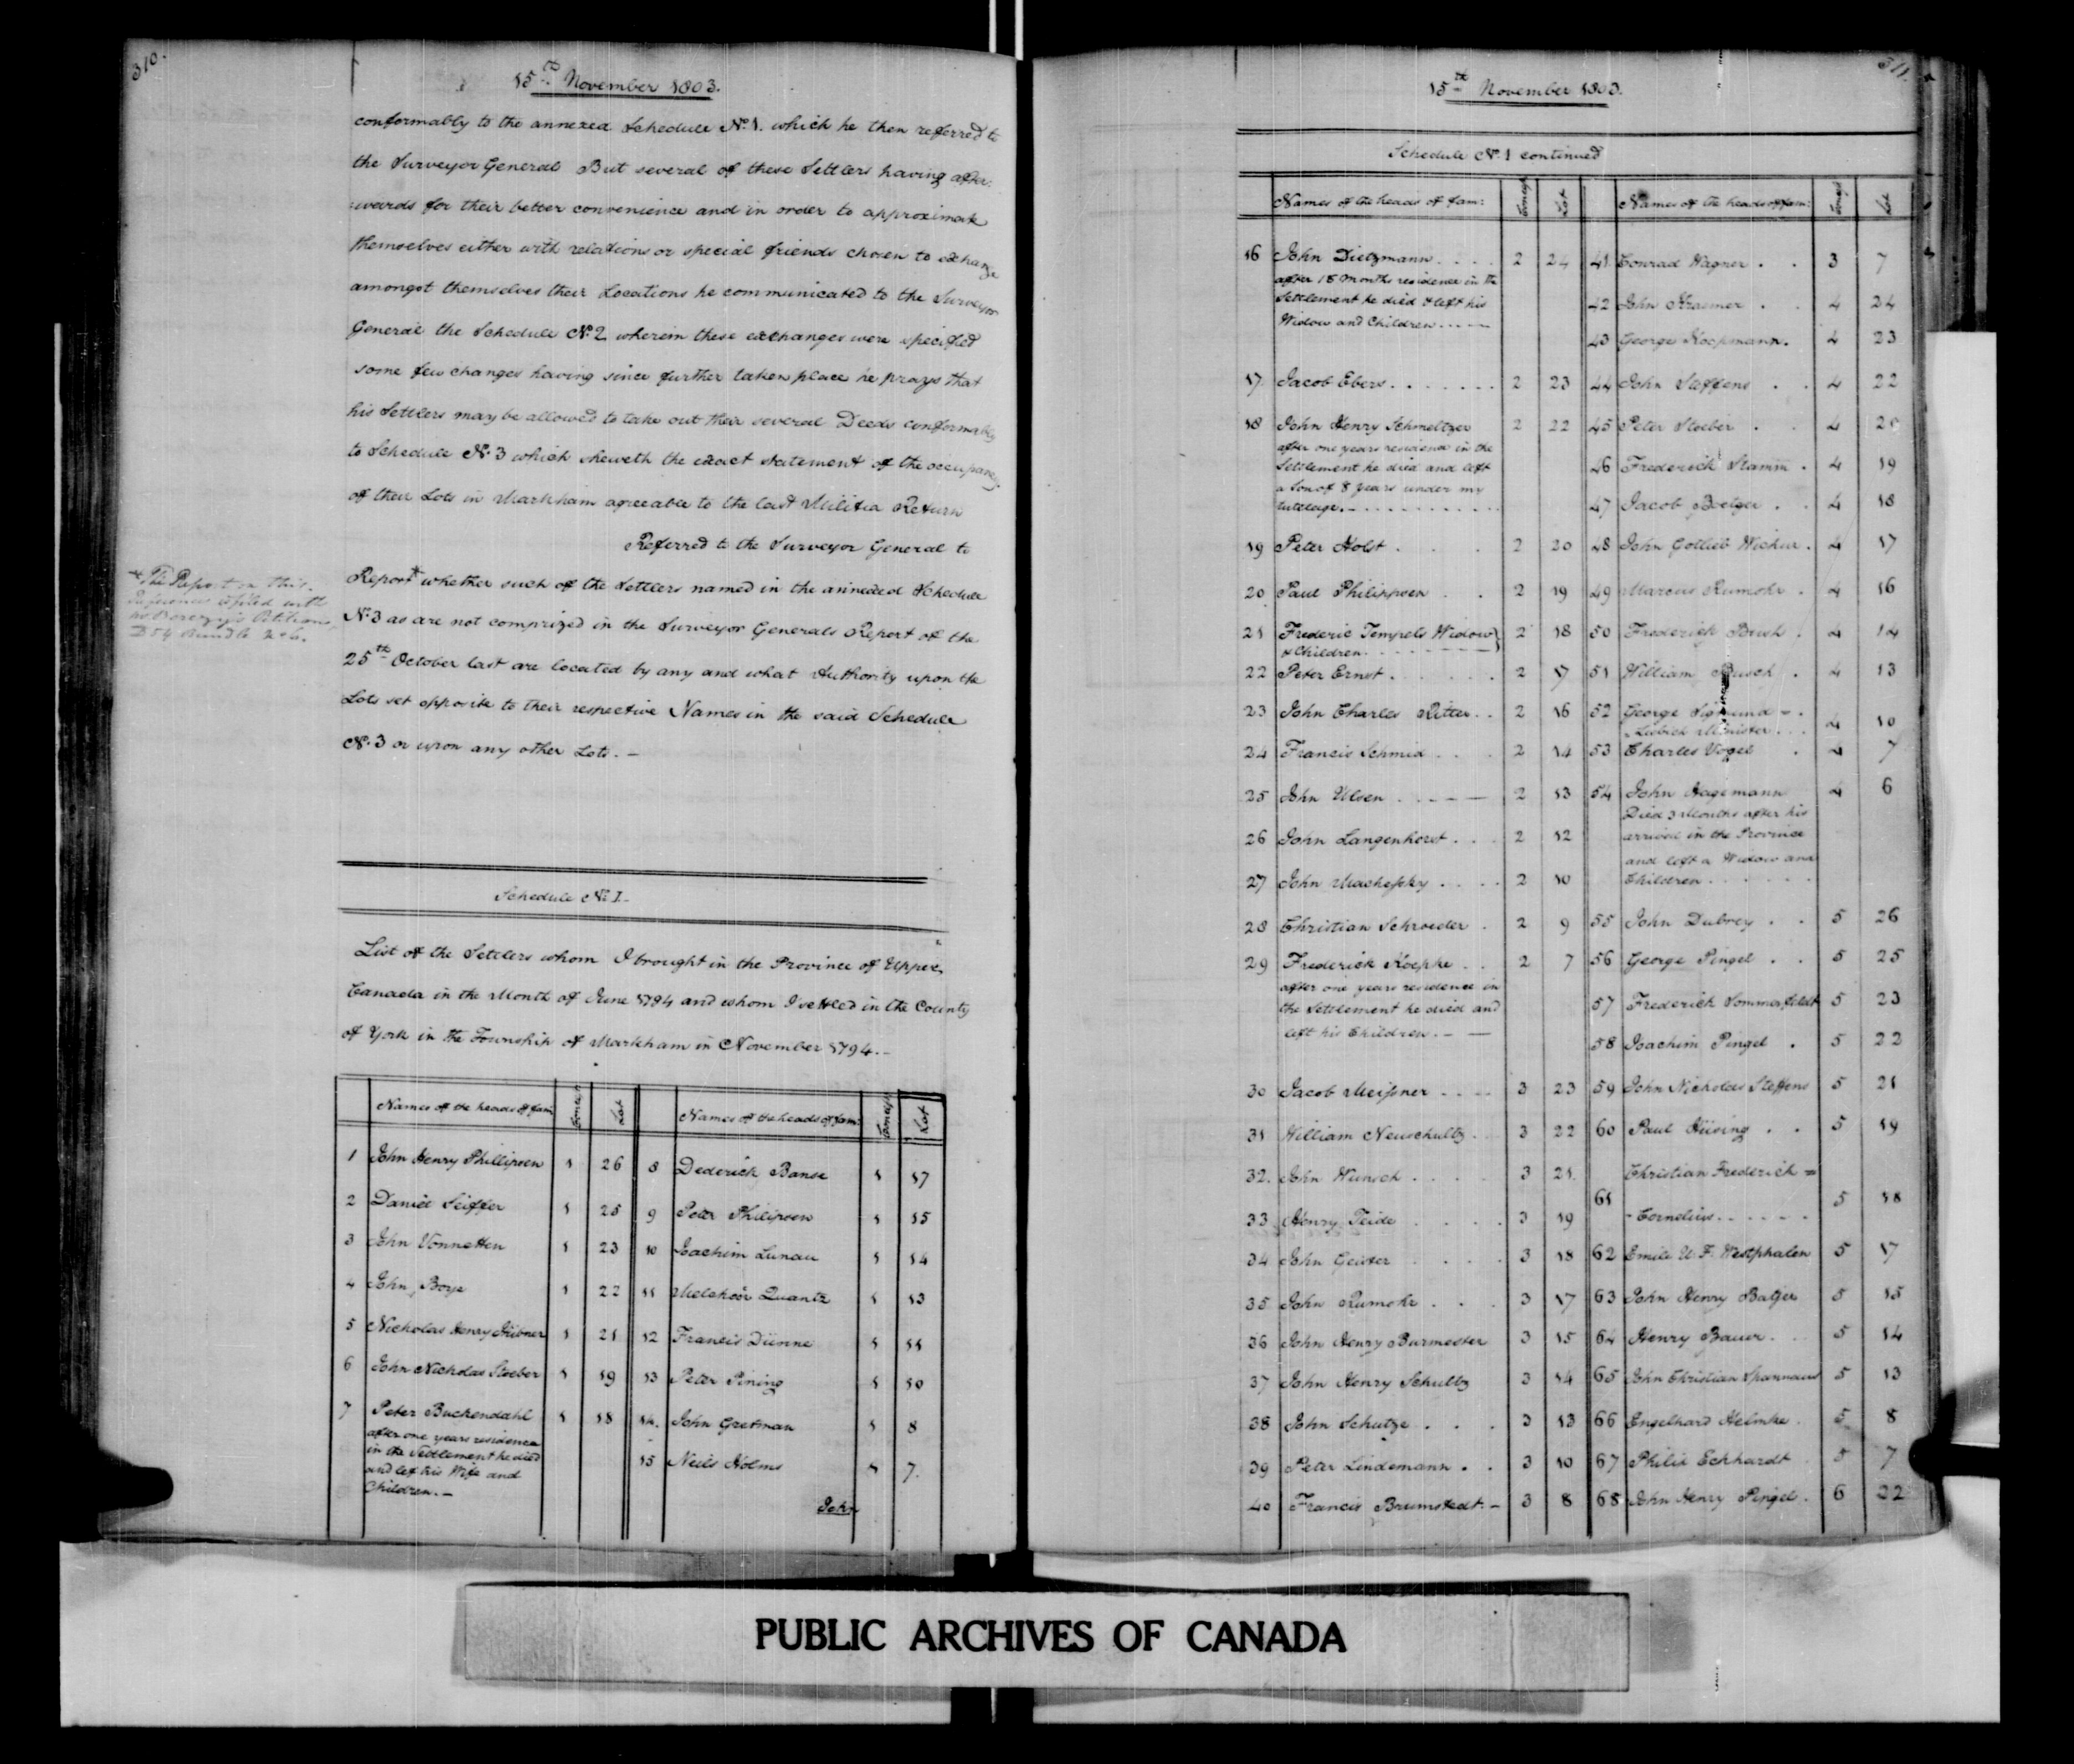 310.
15th November 1803.
conformably to the annexed Schedule No. 1. which he then referred to
the Surveyor General But several of these Settlers having after-
wards for their better convenience and in order to approximate
themselves either with relations or special friends chosen to exchange
amongst themselves their Locations he communicated to the Surveyor
General the Schedule No. 2 wherein these exchanges were specified
some few changes having since further taken place he prays that
his Settlers may be allowed to take out their several Deeds conformably
to Schedule No. 3 which sheweth the exact statement of the occupancy
of their Lots in Markham agreeable to the last Militia Return
Referred to the Surveyor General to
Report* whether such of the Settlers named in the annexed Schedule
No. 3 as are not comprized in the Surveyor Generals Report of the
25th October last are located by any and what Authority upon the
Lots set opposite to their respective Names in the said Schedule
No. 3 or upon any other Lots. —
* The Report on this
Reference is filed with
Petitions
Schedule No. I.
List of the Settlers whom I brought in the Province of Upper
Canada in the Month of June 1794 and whom I settled in the County
of York in the Township of Markham in November 1794. –
Names of the heads of fam: Conces Lot Names of the heads of fam: Conces Lot
1 John Henry Phillipsen 1 26 8 Dederick Banse 1 17
2 Daniel Seiffer 1 25 9 Peter Philipsen 1 15
3 John Vonnetten 1 23 10 Joachim Lunau 1 14
4 John Boye 1 22 11 Melchior Quantz 1 13
5 Nicholas Henry Hübner 1 21 12 Francis Dünne 1 11
6 John Nicholas Stoeber 1 19 13 Peter Pining 1 10
7 Peter Buckendahl 1 18 14. John Gretman 1 8
after one years residence
in the Settlement he died
and left his Wife and
Children. —
15 Neils Holms 1 7.
John
311.
15th November 1803.
Schedule No. 1 continued
Names of the heads of fam: Conces Lot Names of the heads of fam: Conces Lot
16 John Dietzmann . . . . 2 24
after 18 months residence in the
Settlement he died & left his
Widow and Children . . . .
17. Jacob Ebers . . . . . . . 2 23
18 John Henry Schmeltzer 2 22
after one years residence in the
Settlement he died and left
a Son of 8 years under my
tutelage. . . . . . . . . . . .
19 Peter Holst . . . . 2 20
20 Paul Philippsen . . 2 19
21 Frederic Tempels Widow } 2 18
& Children. . . . . . . . .
22 Peter Ernst . . . . . . 2 17
23 John Charles Ritter . . 2 16
24 Francis Schmid . . . 2 14
25 John Ulsen . . — — — 2 13
26 John Langenhorst . . . 2 12
27 John Machefsky . . . . 2 10
28 Christian Schroeder . 2 9
29 Frederick Koepke . . 2 7
after one years residence in
the Settlement he died and
left his Children. — —
30 Jacob Meissner . . . . 3 23
31 William Neuschultz . . 3 22
32. John Wunsch . . . . 3 21.
33 Henry Teide . . . . 3 19
34 John Geister . . . . 3 18
35 John Rumohr . . . 3 17
36 John Henry Burmester 3 15
37 John Henry Schultz 3 14
38 John Schutze . . . 3 13
39 Peter Lindemann . . 3 10
40 Francis Brumstedt. – 3 8
41 Conrad Wagner . . 3 7
42 John Kraemer . . 4 24
43 George Koopmann. 4 23
44 John Steffens . . 4 22
45 Peter Stoeber . . 4
46 Frederick Stamm . 4 19
47 Jacob Boetger . . 4 18
48 John Gottlieb Wichur . 4 17
49 Marcus Rumohr . 4 16
50 Frederick Bush . 4 14
51 William Rusch . 4 13
52 George Sigmund = .
- Liebich Minister . . . 4 10
53 Charles Vogel . 4 7
54 John Hagemann 4 6
Died 3 Months after his
arrival in the Province
and left a Widow and
Children . . . . . .
55 John Dubrey . . 5 26
56 George Pingel . . 5 25
57 Frederick Sommerfeldt 5 23
58 Joachim Pingel . 5 22
59 John Nicholas Steffens 5 21
60 Paul Hüsing . . 5 19
Christian Frederick =
61 - Cornelius . . . . . . 5 18
62 Emili U. F. Westphalen 5 17
63 John Henry Batjer 5 15
64 Henry Bauer . . . 5 14
65 John Christian Spannaus 5 13
66 Engelhard Helmke . 5 8
67 Philip Eckhardt . 5 7
68 John Henry Pingel . 6 22
PUBLIC ARCHIVES OF CANADA